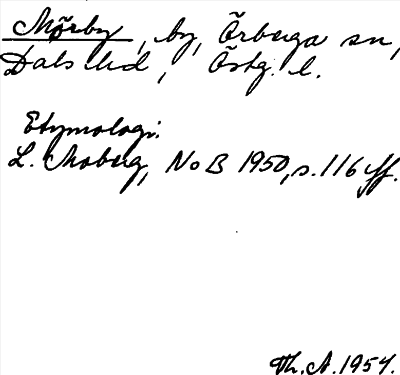 Mörby, by, Örberga sn,
Dals hd, Östg. l.
Etymologi.
L. Moberg, NoB 1950, s. 116 ff.
Th. A. 1954.